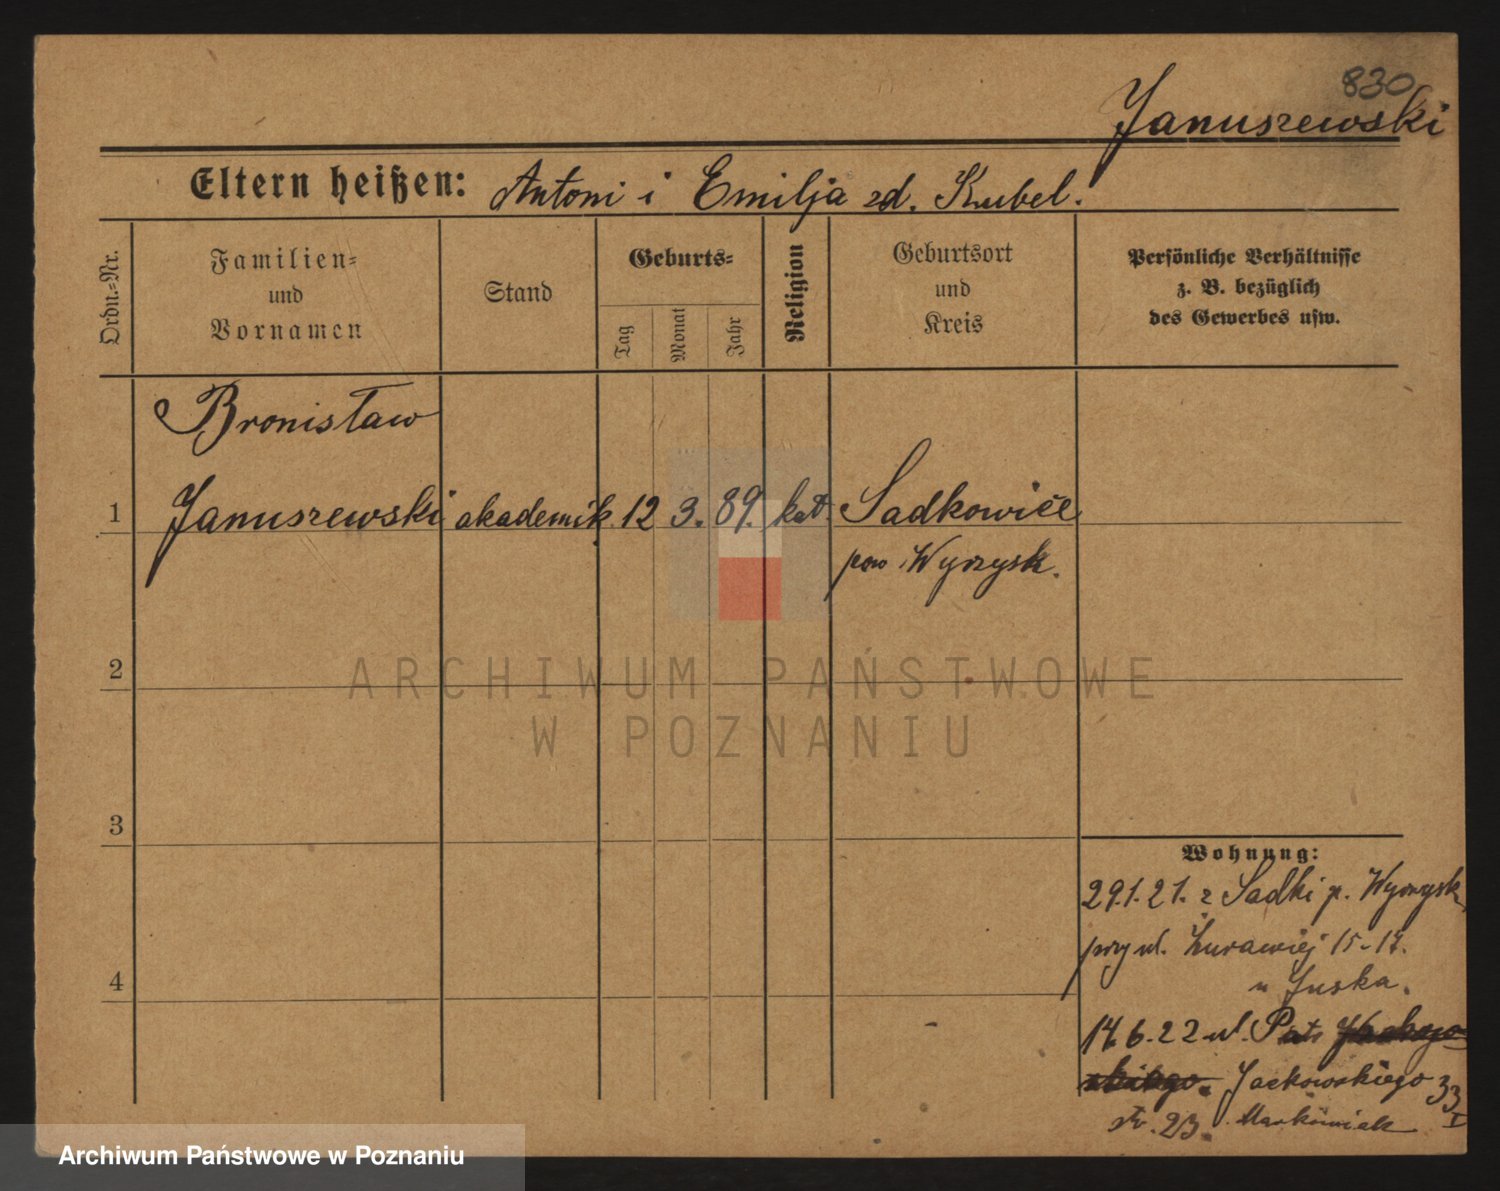 830
Januszewski
Eltern heißen: Antoni i Emilja zd. Kubel.
Ordn.-Nr.
Familien-
und
Vornamen
Stand
Geburts-
Tag
Monat
Jahr
Religion
Geburtsort
und
Kreis
Persönliche Verhältnisse
z. B. bezüglich
des Gewerbes usw.
Bronisław
1 Januszewski akademik. 12 3. 89. kat. Sadkowice
pow. Wyrzysk.
2
3
4
Wohnung:
29.1.21. z Sadki p. Wyrzysk
przy ul. Żurawiej 15-17.
u Juska.
6.22 ul.
Jackowskiego 33
23. Markowiak
ARCHIWUM PAŃSTWOWE
W POZNANIU
Archiwum Państwowe w Poznaniu